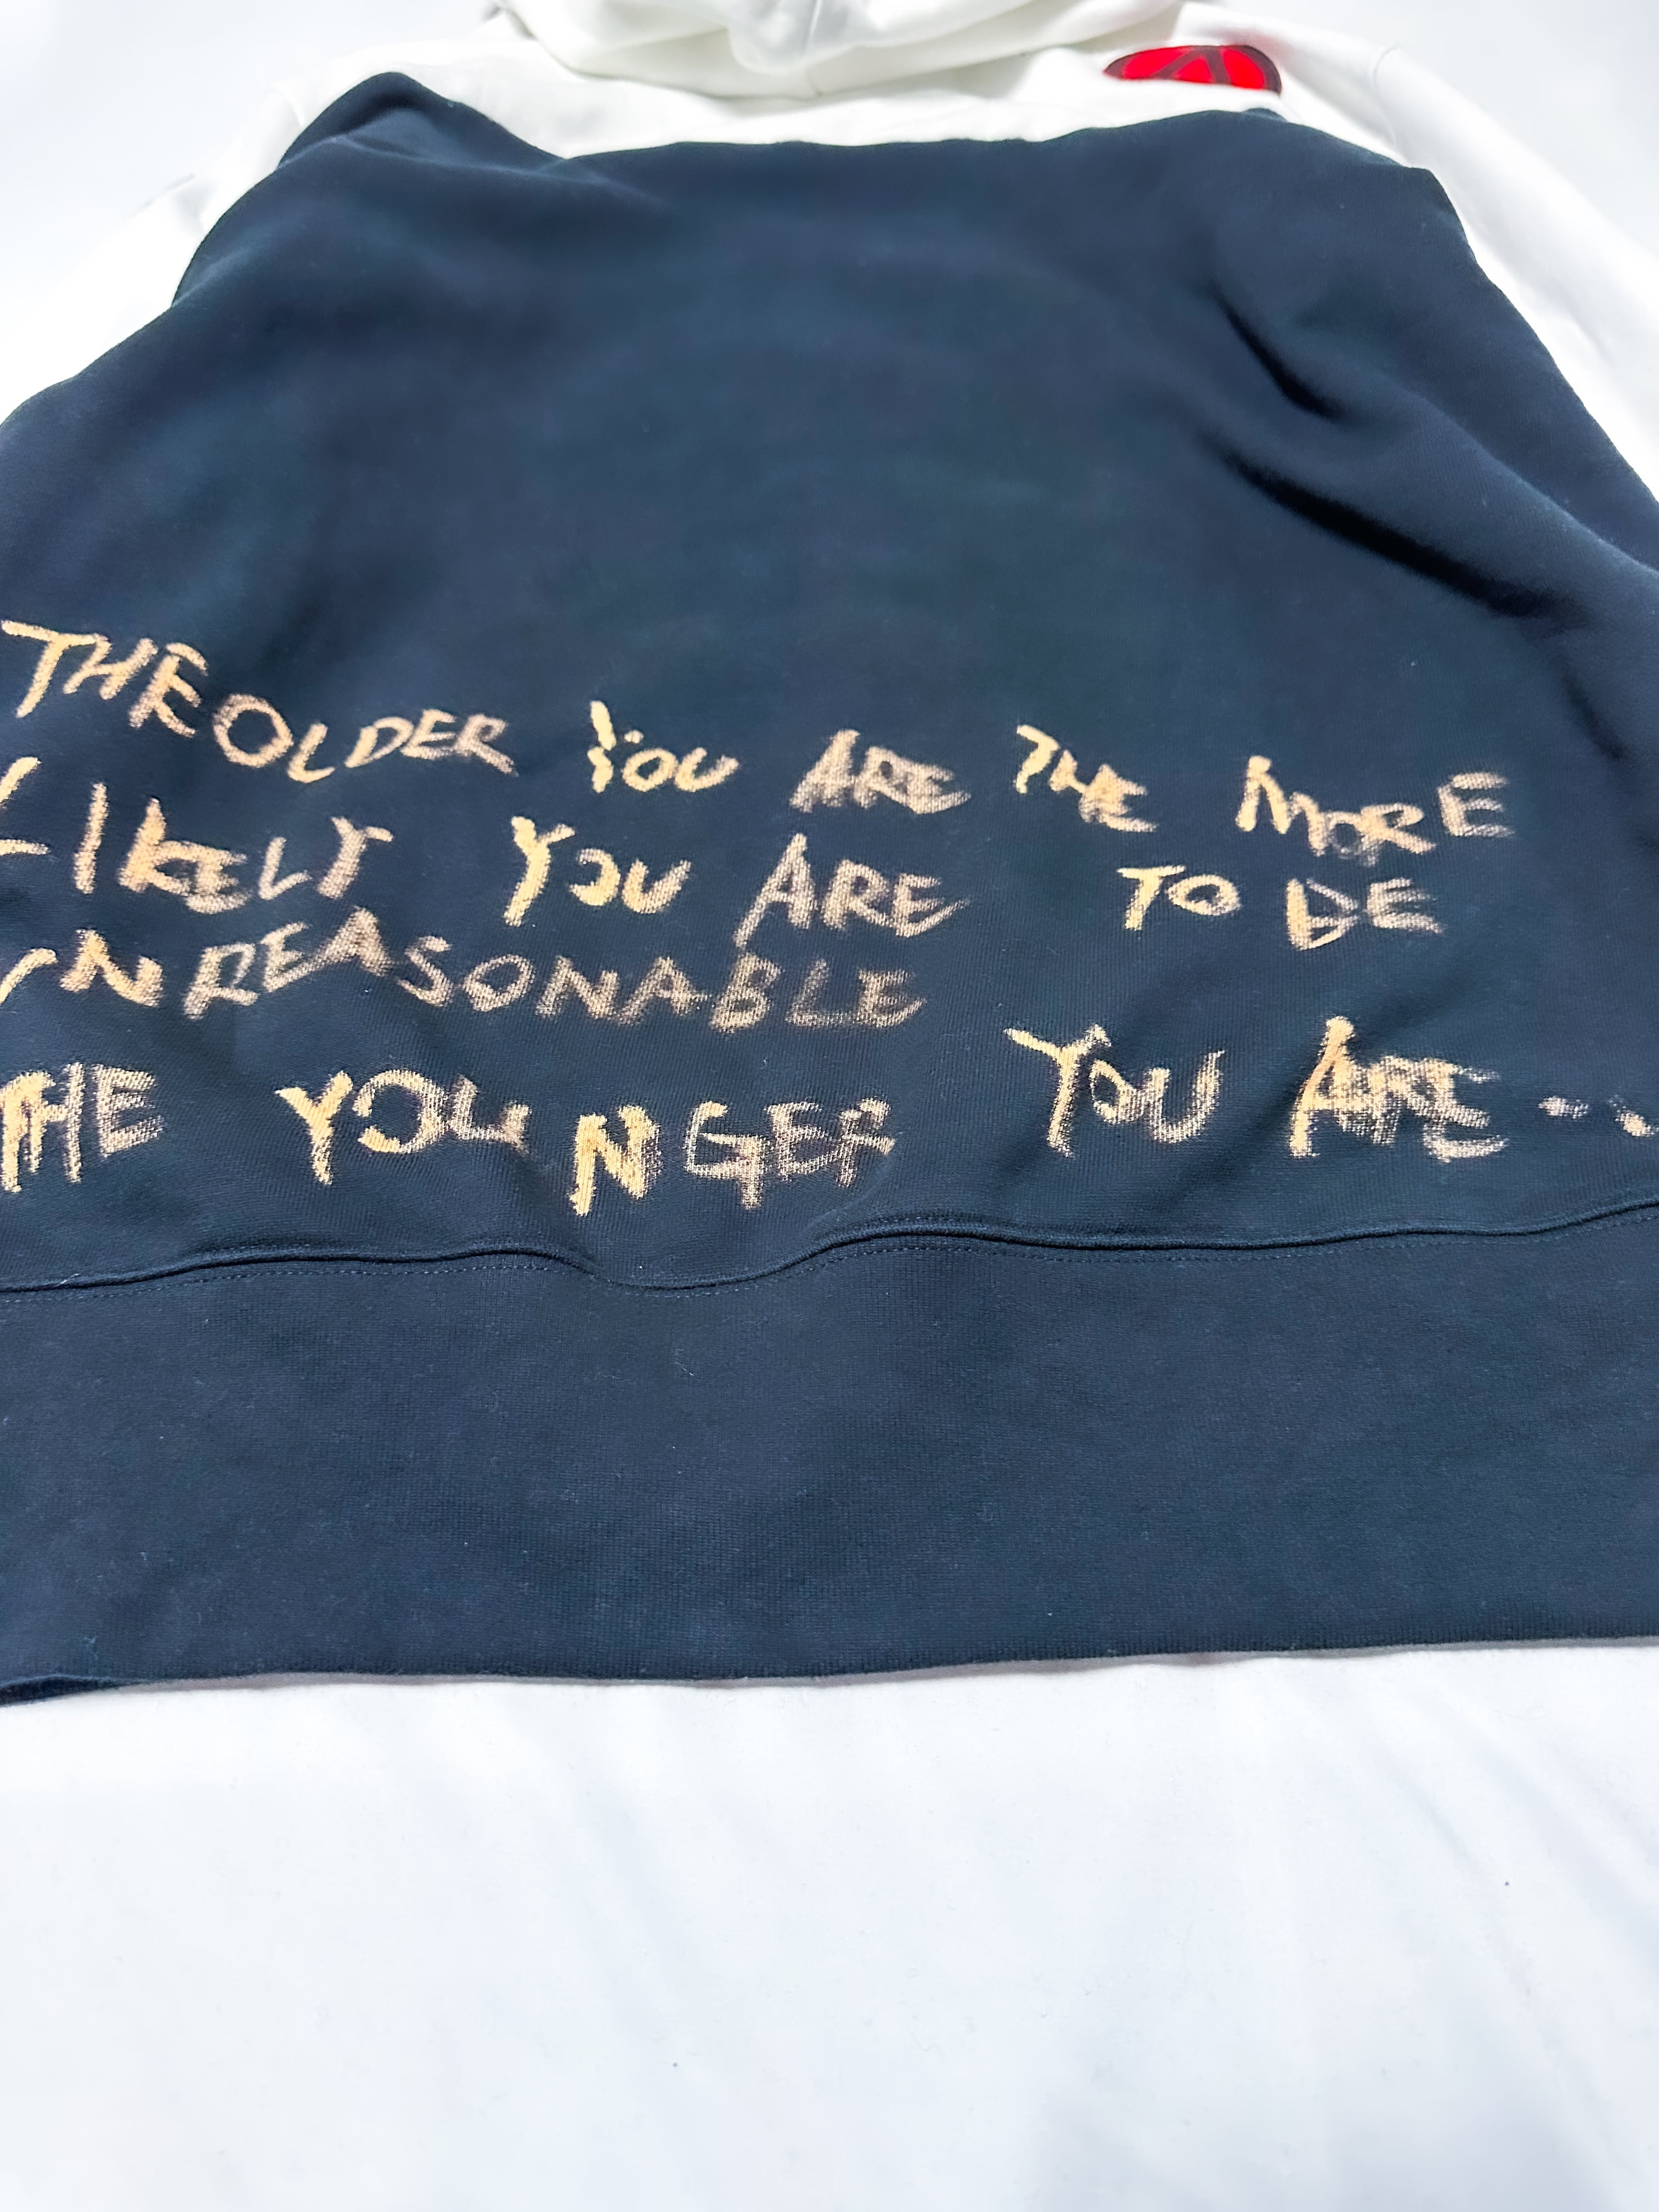 THE OLDER YOU ARE THE MORE
LIKELY YOU ARE TO BE
UNREASONABLE
THE YOUNGER YOU ARE...